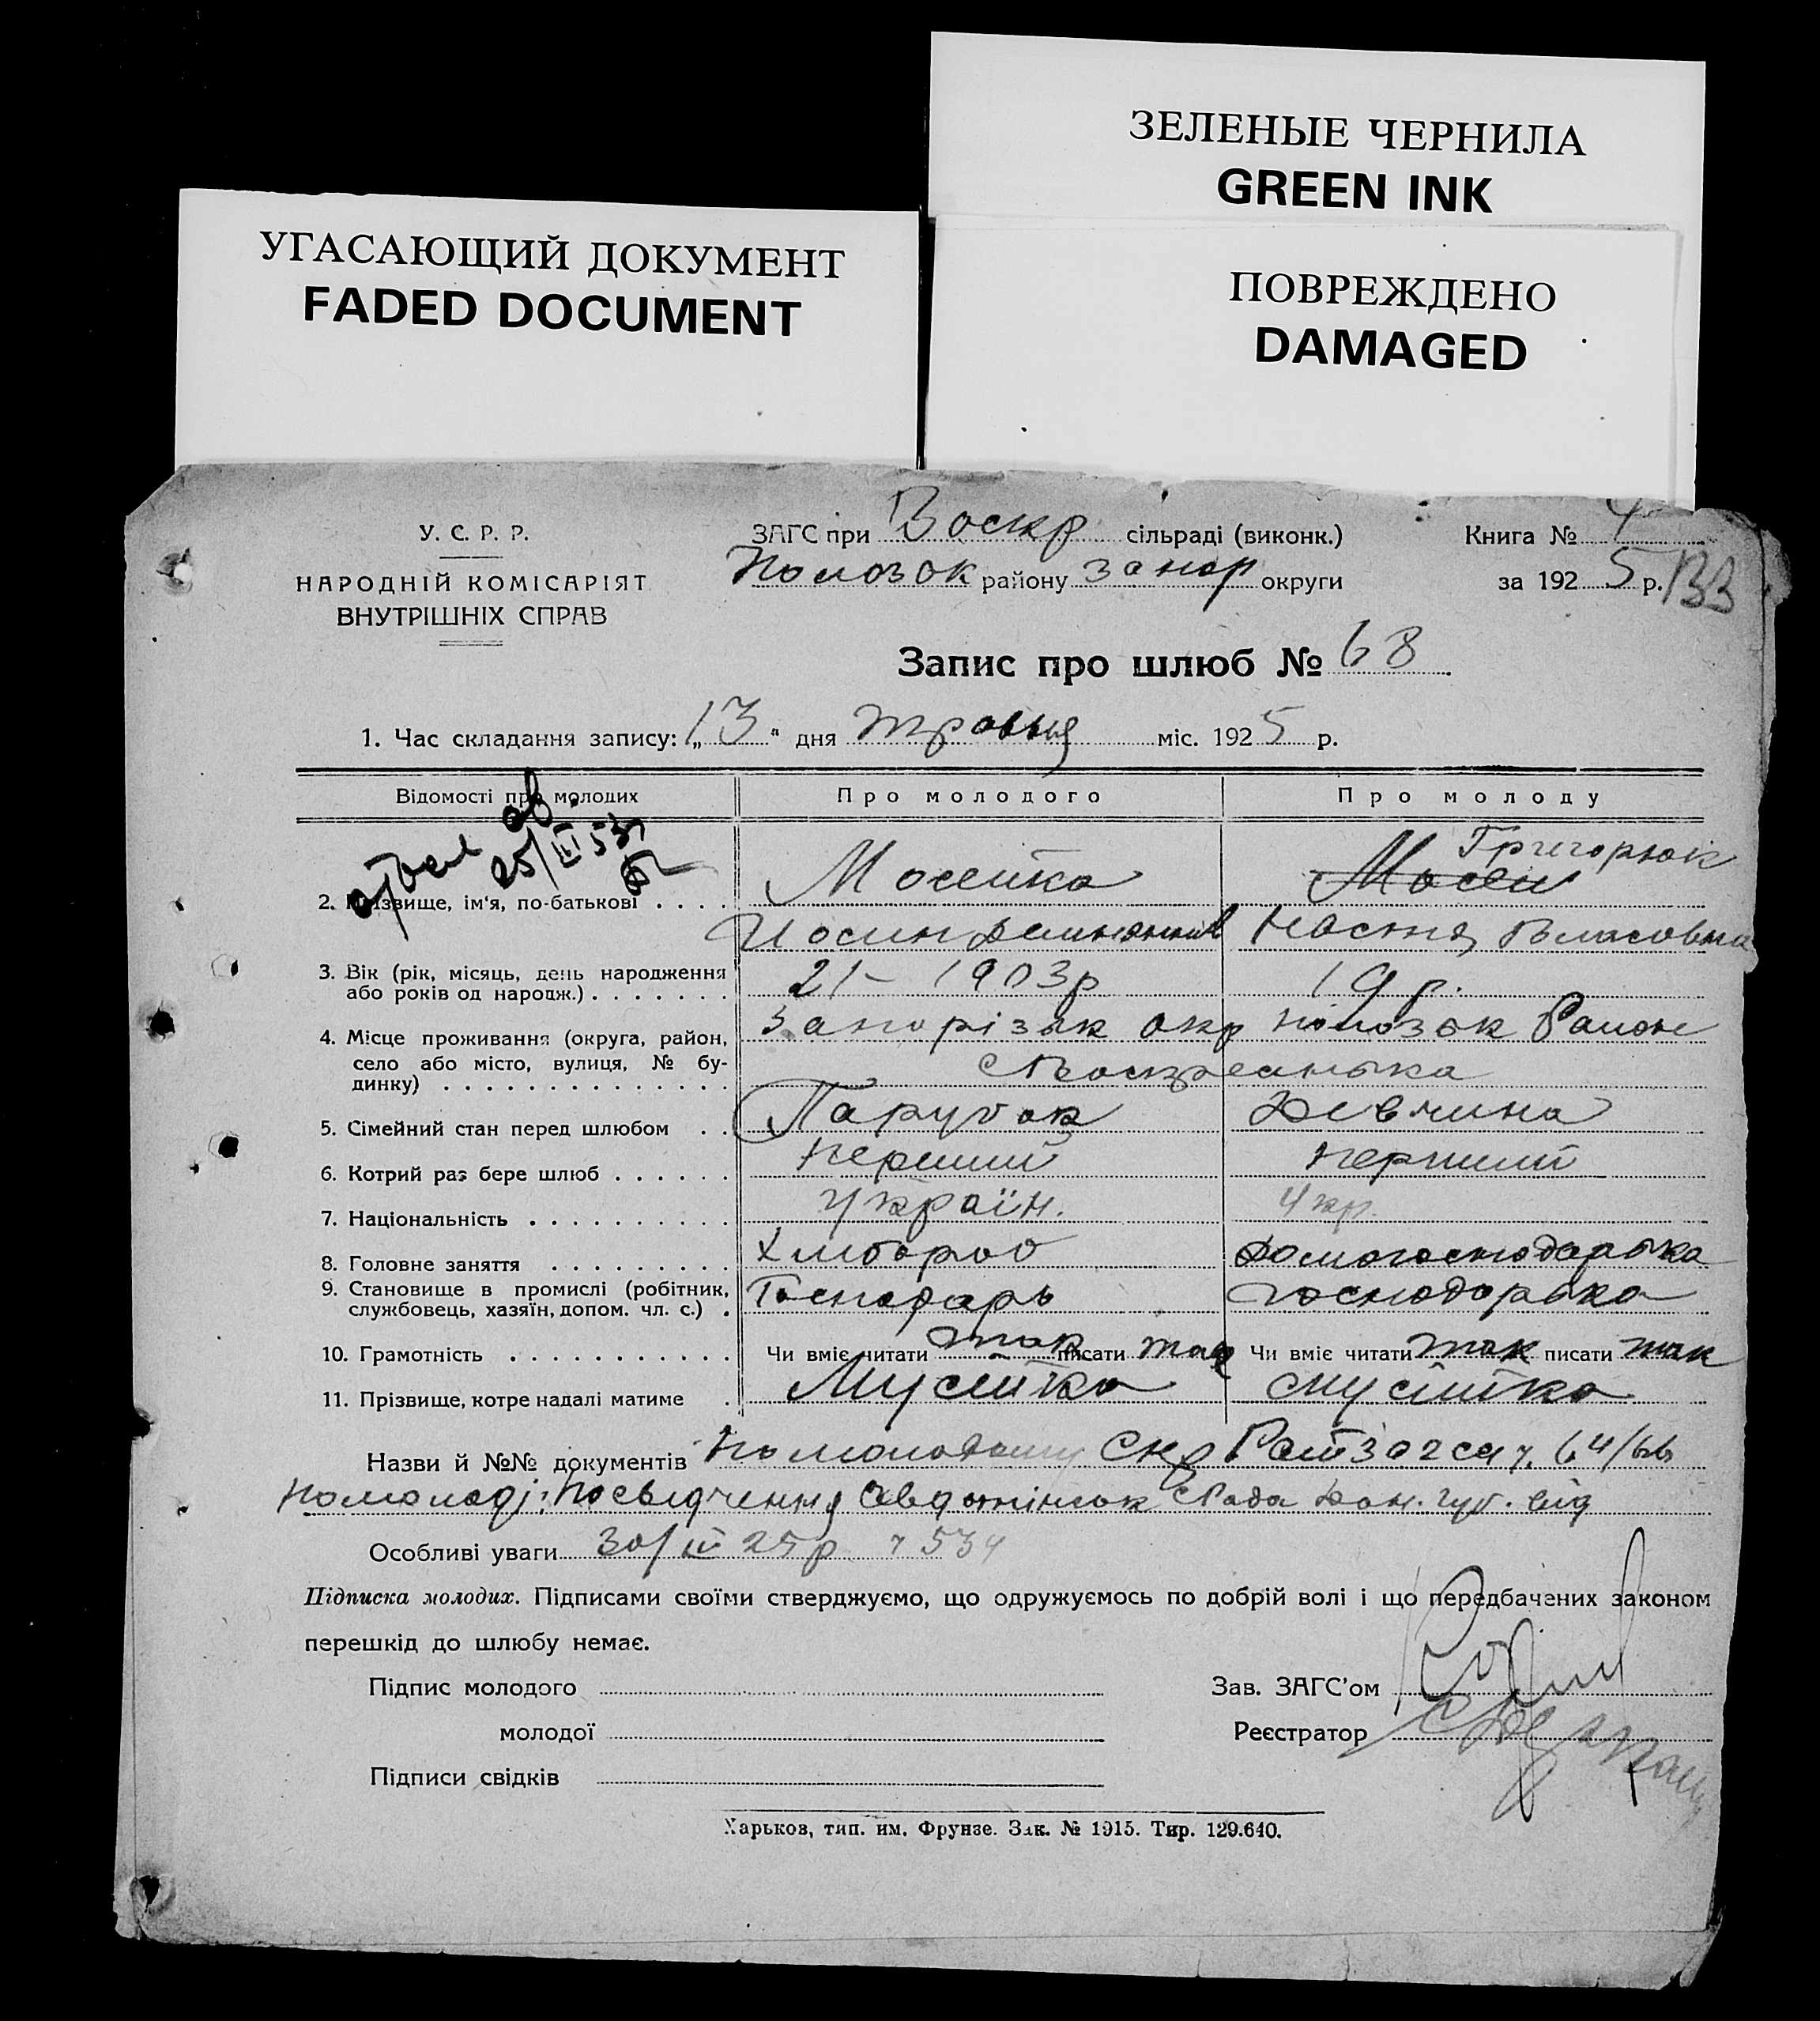 ЗЕЛЕНЫЕ ЧЕРНИЛА
GREEN INK
УГАСАЮЩИЙ ДОКУМЕНТ
FADED DOCUMENT
ПОВРЕЖДЕНО
DAMAGED
У. С. Р. Р.
НАРОДНІЙ КОМІСАРІЯТ
ВНУТРІШНІХ СПРАВ
ЗАГС при Воскр сільраді (виконк.)
Полозок району запор округи
Книга № 4
за 1925 р.
133
Запис про шлюб № 68
1. Час складання запису: „13" дня травня міс. 1925 р.
Відомості про молодих
Про молодого
Про молоду
25/III 53
2. Прізвище, ім'я, по-батькові . . . . Мосейка Григорюк
Иосип Настя Власовна
3. Вік (рік, місяць, день народження або років од народж.) . . . . . . . 21 – 1903р 19 р.
4. Місце проживання (округа, район, село або місто, вулиця, № будинку) . . . . . . . . . . . . . . Запорізьк окр полозок Район
5. Сімейний стан перед шлюбом . . Парубок Девчина
6. Котрий раз бере шлюб . . . . . . перший перший
7. Національність . . . . . . . . . . україн. укр.
8. Головне заняття . . . . . . . . . Хлібороб домогосподарька
9. Становище в промислі (робітник, службовець, хазяїн, допом. чл. с.) . Господарь господарька
10. Грамотність . . . . . . . . . . . Чи вміє читати так писати так Чи вміє читати так писати так
11. Прізвище, котре надалі матиме . Мусейка Мусейка
Назви й №№ документів По молодому 64/66
По молоді: Посьвідчення Авдотінськ сРада Дон. губ. від
Особливі уваги 30/IV 25р 534
Підписка молодих. Підписами своїми стверджуємо, що одружуємось по добрій волі і що передбачених законом
перешкід до шлюбу немає.
Підпис молодого
молодої
Підписи свідків
Зав. ЗАГС'ом
Реєстратор
Харьков, тип. им. Фрунзе. Зак. № 1915. Тир. 129.640.